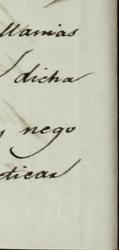 llamas
dicha
nego
ticar